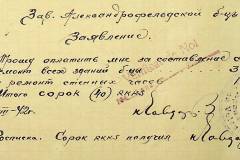 Зав. Александрофельдской б-цы
Заявление.
Прошу оплатить мне за составление с
ремонт всех зданий б-цы
ремонт стенных часов
Итого сорок (40) RKKS
III-42г.
Росписка. Сорок RKKS получил